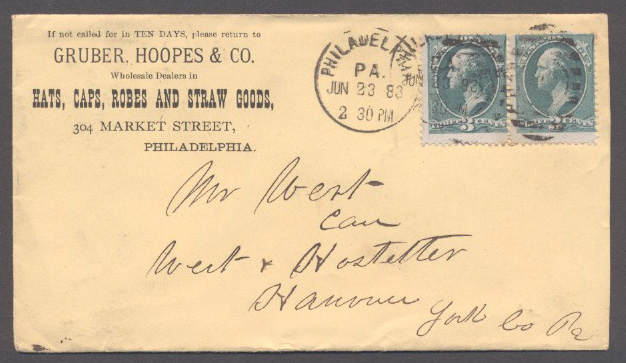 If not called for in TEN DAYS, please return to
GRUBER, HOOPES & CO.
Wholesale Dealers in
HATS, CAPS, ROBES AND STRAW GOODS,
304 MARKET STREET,
PHILADELPHIA.
PHILADEL
PA.
JUN 23 83
2 30 PM
3 CENTS
Mr West
Care
West & Hostetter
Hanover
York Co Pa